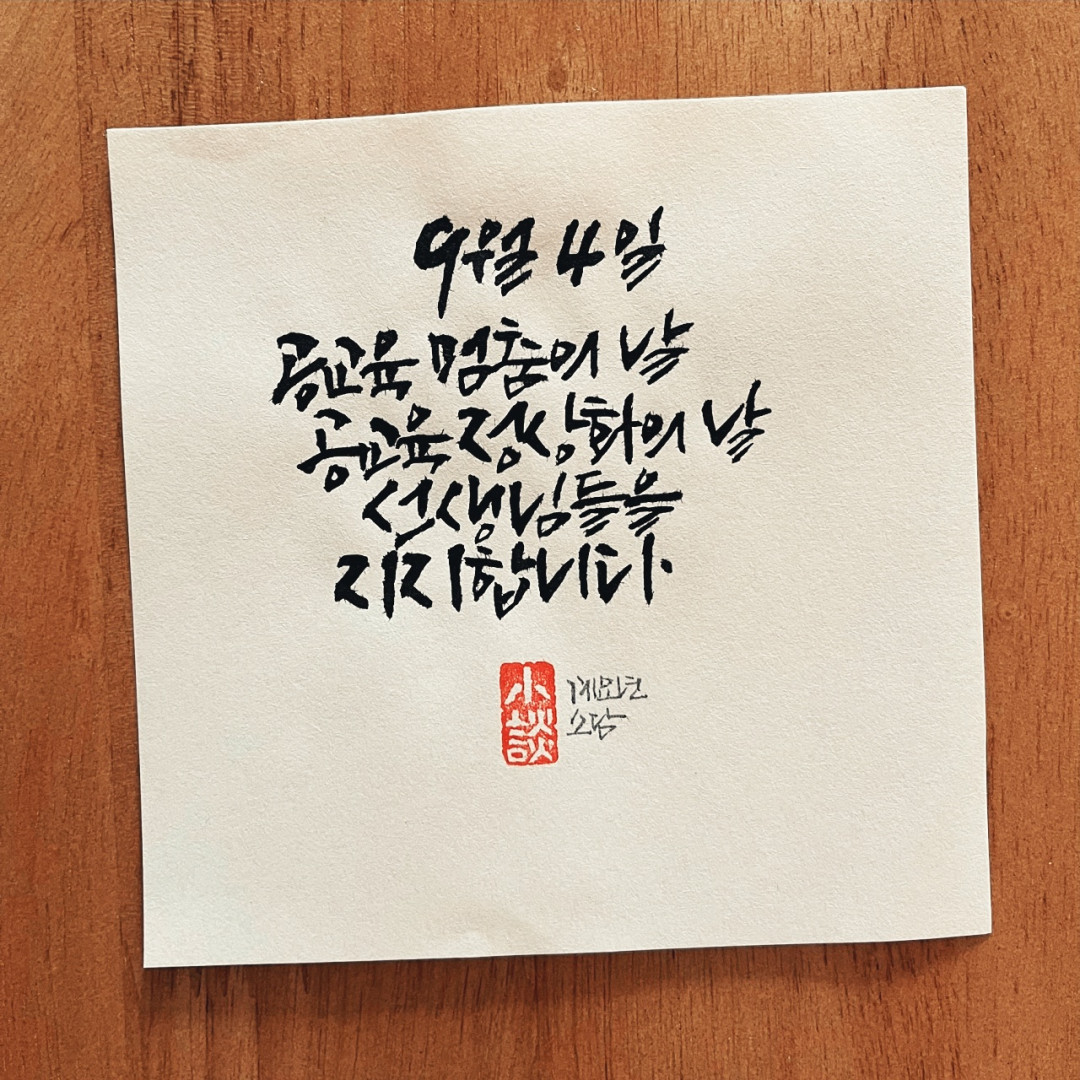 9월 4일
공교육 멈춤의 날
공교육 정상화의 날
선생님들을
지지합니다.
小談
계묘년
소담